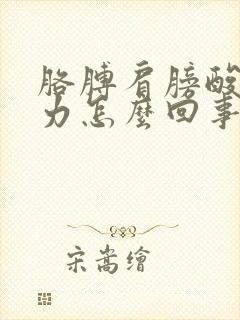 胳膊肩膀酸
力怎麼回事
宋嵩繪